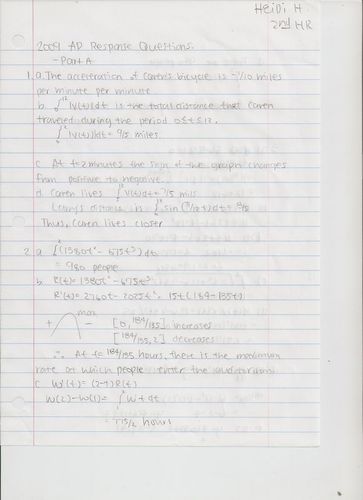 Heidi H
2nd HR
2009 AP Response Questions.
-Part A
1. a. The acceleration of Caren's bicycle is -1/10 miles
per minute per minute.
b. ∫ |v(t)| dt is the total distance that Caren
traveled during the period 0≤t≤12.
∫ |v(t)| dt = 9/5 miles.
c. At t=2 minutes the sign of the graph changes
from positive to negative.
d. Caren lives ∫ v(t) dt = 7/5
distance is ∫ sin dt =
Thus, Caren lives closer
2. a. ∫(1380t² - 675t³) dt
= 980 people
b. R(t) = 1380t² - 675t³
R'(t) = 2760t - 2025t² = 15t(184-135t)
+ max -
[0, 184/135] increases
[184/135, 2] decreases
∴ At t= 184/135 hours, there is the maximum
rate at which people enter the auditorium.
c. W'(t) = (2-t)R(t)
W(2)-W(1) = ∫ W' dt
= hours